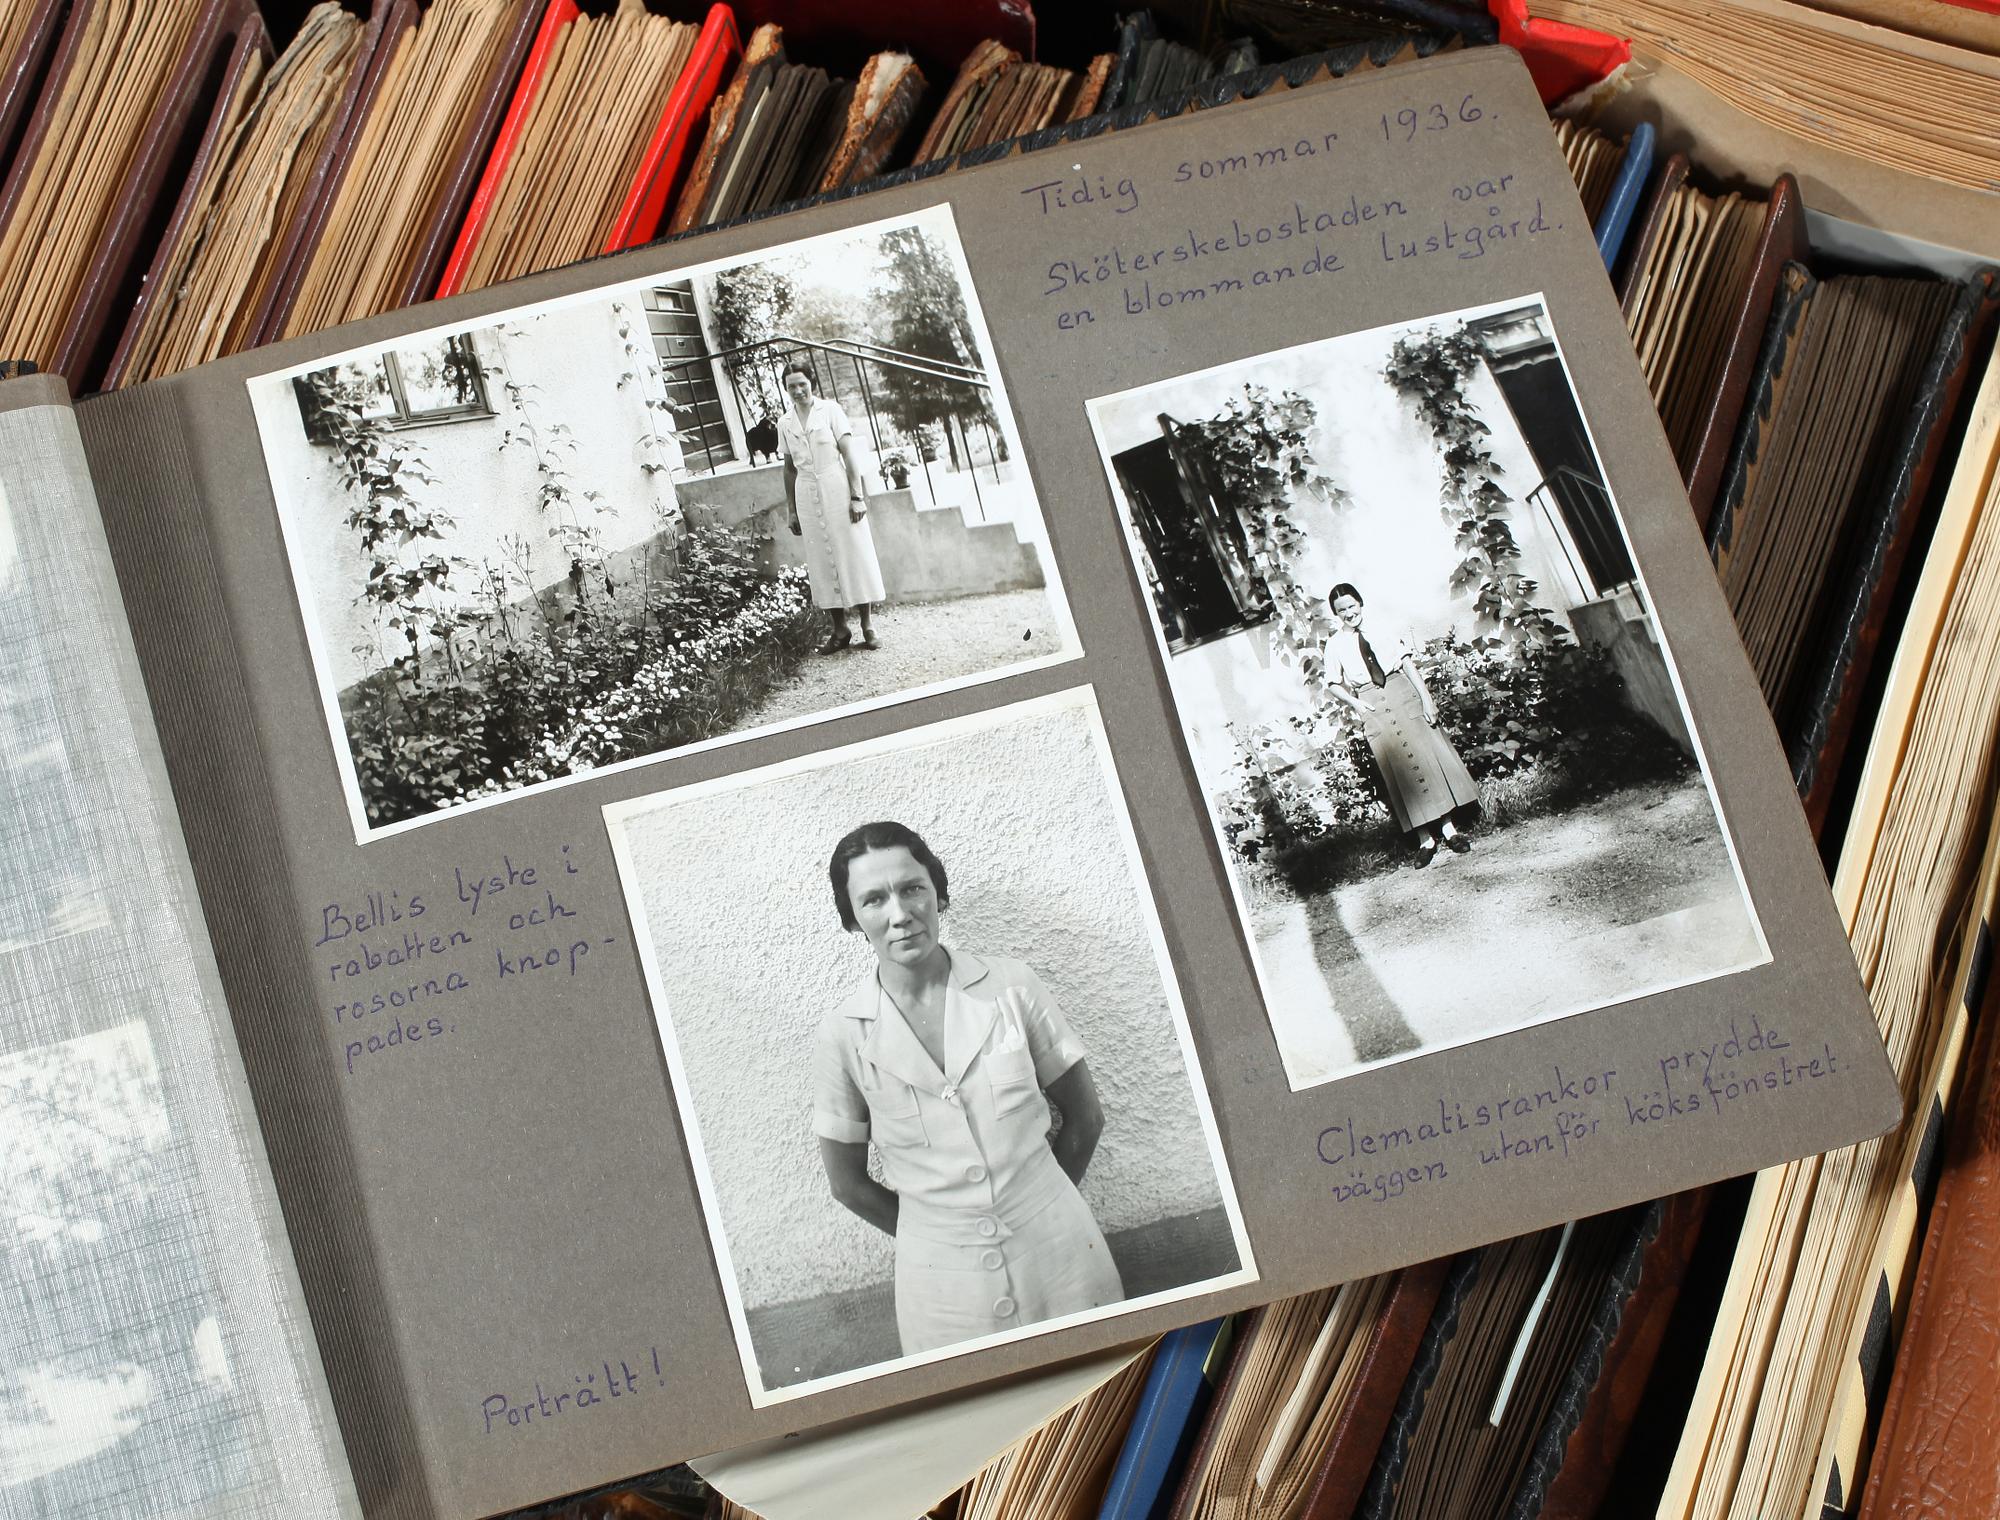 Tidig sommar 1936.
Sköterskebostaden var
en blommande lustgård.
Bellis lyste i
rabatten och
rosorna knop-
pades.
Clematisrankor prydde
väggen utanför köksfönstret.
Porträtt!